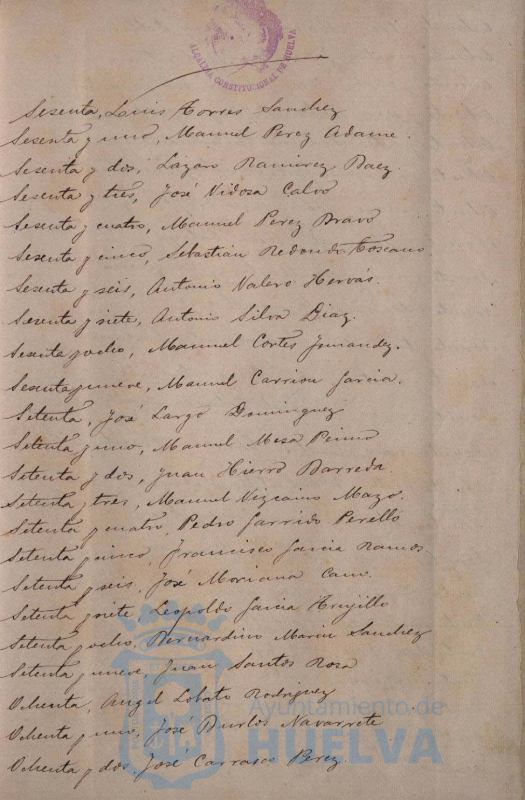 ALCALDIA CONSTITUCIONAL DE HUELVA
Sesenta, Luis Torres Sanchez
Sesenta y uno, Manuel Perez Adame.
Sesenta y dos, Lázaro Ramirez Baez
Sesenta y tres, José Vidosa Calvo
Sesenta y cuatro, Manuel Perez Bravo
Sesenta y cinco, Sebastián Redondo Toscano
Sesenta y seis, Antonio Valero Hervás.
Sesenta y siete, Antonio Silva Diaz.
Sesenta y ocho, Manuel Cortés Fernandez.
Sesenta y nueve, Manuel Carrion Garcia.
Setenta, José Largo Dominguez
Setenta y uno, Manuel Mesa
Setenta y dos, Juan Hierro Barreda
Setenta y tres, Manuel Vizcaino Mazo.
Setenta y cuatro, Pedro Garrido Perelló
Setenta y cinco, Francisco Garcia Ramos
Setenta y seis, José Moriana Cano.
Setenta y siete Leopoldo Garcia Trujillo
Setenta y ocho, Bernardino Marin Sanchez
Setenta y nueve, Juan Santos Rosa
Ochenta, Angel Lobato Rodriguez
Ochenta y uno, José Burlos Navarrete
Ochenta y dos, José Carrasco Perez.
Ayuntamiento de
HUELVA